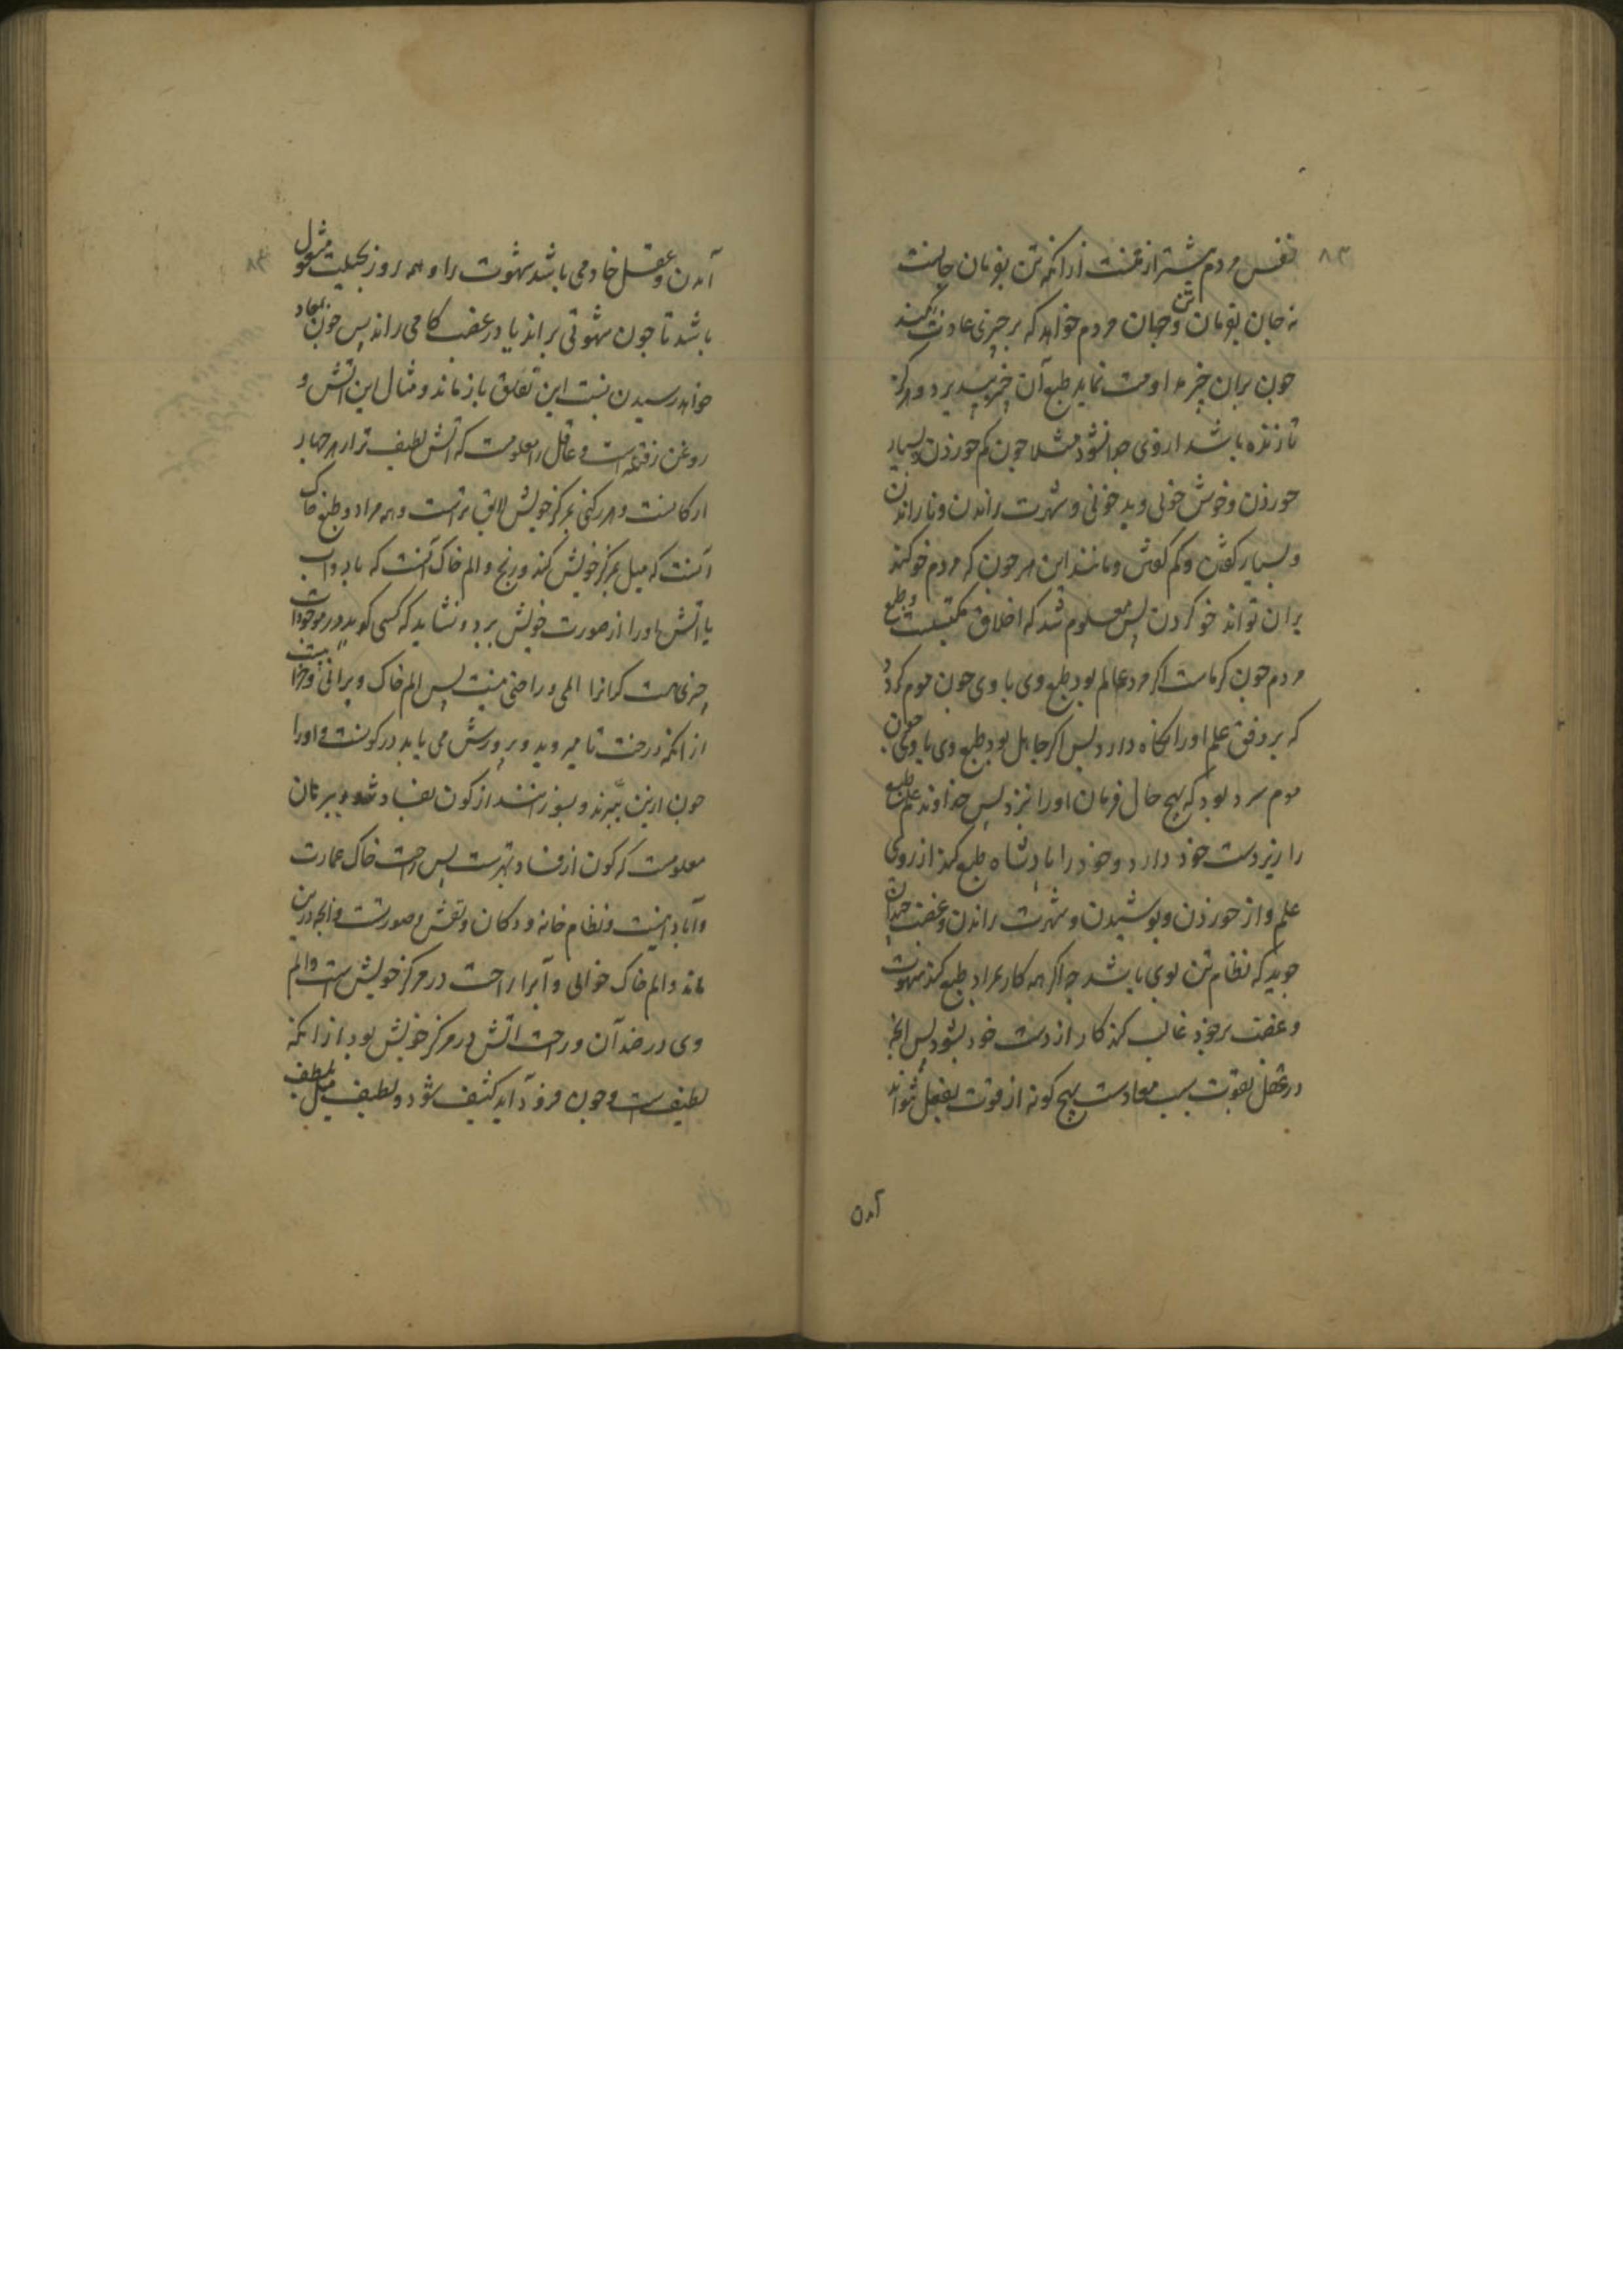 ۸۳
نفس مردم بیشتر از تنست زیرا که تن بفرمان جانست
نه جان بفرمان تن و جهان مردم خواهد که بر چیزی عادت کند
جون بران چیز مداومت نماید طبع آن چیز بپذیرد و هرکز
تا زنده باشد از وی جدا نشود مثلا جون کم خوردن و بسیار
خوردن و خوش خوئی و بد خوئی و شهوت راندن و نا راندن
و بسیار کفتن و کم کفتن و مانند این هر جون که مردم خو کند
بران تواند خو کردن پس معلوم شد که اخلاق مکتسبست و طبع
مردم جون کرماست اکر مرد عالم بود طبع وی با وی جون موم کرد
که بر وفق علم او را نکاه دارد پس اکر جاهل بود طبع وی با وی جون
موم سرد بود که بهیچ حال فرمان او را نبرد پس خداوند علم طبع
را زیر دست خود دارد و خود را بادشاه طبع کند از روی
علم و از خوردن و پوشیدن و شهوت راندن و غضب جندان
جوید که نظام تن بوی باشد جه اکر همه کار بمراد طبع کند شهوت
و غضب بر خود غالب کند کار از دست خود بشود پس آنچه
در عقل بقوت بسبب معاونت بهیچ کونه از قوت بفعل نتواند
آمدن
۸۴
آمدن و عقل خادمی باشد شهوت را و همه روز بحیلت مشغول
باشد تا جون شهوتی براند یا در غضب کامی راند پس جون بمعاد
خواهد رسیدن نسبت این تعلق باز ماند و مثال این آتش و
روغن رفتهٔ است و عاقل را معلومست که آتش لطیف تر از هر جهار
ارکانست و هر رکنی بمرکز خویش لایق ترست و همه مراد و طبع خاک
آنست که میل بمرکز خویش کند و رنج و الم خاک آنست که باد و آب
یا آتش او را از صورت خویش برد و نشاید که کسی کوید در موجودات
چیزی هست که او را المی و راحتی نیست پس الم خاک ویرانی و خرابیست
از انکه درخت تا میروید و پرورش می یابد در کونست و او را
جون از بن ببرند و بسوزانند از کون بفساد شود و بر تان
معلومست که کون از فساد بهترست پس راحت خاک عمارت
و آبادانیست و نظام خانه و دکان و نقش و صورتست و آنچه درین
ماند و الم خاک خرابی و آب را راحت در مرکز خویش است و الم
وی در ضد آن و راحت آتش در مرکز خویش بود از انکه
لطیف است و جون فرود آید کثیف شود و لطیف میل بلطف